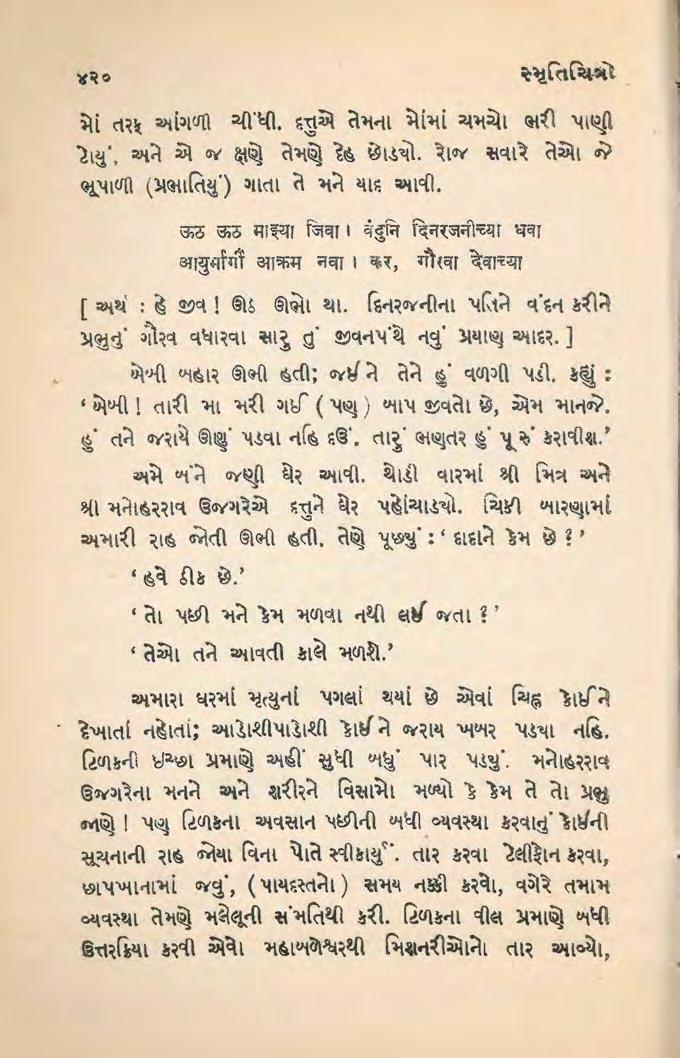 ૪૨૦ સ્મૃતિચિત્રો
મોં તરફ આંગળી ચીંધી. દત્તુએ તેમના મોંમાં ચમચો ભરી પાણી
ટોયું, અને એ જ ક્ષણે તેમણે દેહ છોડયો. રોજ સવારે તેઓ જે
ભૂપાળી (પ્રભાતિયું) ગાતા તે મને યાદ આવી.
ऊठ ऊठ माझ्या जिवा। वंदुनि दिनरजनीच्या धवा
आयुर्मार्गीं आक्रम नवा । कर, गौरवा देवाच्या
[ અર્થ : હે જીવ ! ઊઠ ઊભો થા. દિનરજનીના પતિને વંદન કરીને
પ્રભુનું ગૌરવ વધારવા સારુ તું જીવનપંથે નવું પ્રયાણ આદર. ]
બેબી બહાર ઊભી હતી; જઈને તેને હું વળગી પડી. કહ્યું :
‘બેબી ! તારી મા મરી ગઈ ( પણ ) બાપ જીવતો છે, એમ માનજે.
હું તને જરાયે ઊણું પડવા નહિ દઉં. તારું ભણતર હું પૂરું કરાવીશ.’
અમે બંને જણી ઘેર આવી. થોડી વારમાં શ્રી મિત્ર અને
શ્રી મનોહરરાવ ઉજગરેએ દત્તુને ઘેર પહોંચાડયો. ચિકી બારણામાં
અમારી રાહ જોતી ઊભી હતી. તેણે પૂછ્યું : ‘ દાદાને કેમ છે ? ’
‘ હવે ઠીક છે.’
‘ તો પછી મને કેમ મળવા નથી લઈ જતા ? ’
‘ તેઓ તને આવતી કાલે મળશે.’
અમારા ઘરમાં મૃત્યુનાં પગલાં થયાં છે એવાં ચિહ્ન કોઈને
દેખાતાં નહોતાં; આડોશીપાડોશી કોઈને જરાય ખબર પડયા નહિ.
ટિળકની ઇચ્છા પ્રમાણે અહીં સુધી બધું પાર પડયું. મનોહરરાવ
ઉજગરેના મનને અને શરીરને વિસામો મળ્યો કે કેમ તે તો પ્રભુ
જાણે ! પણ ટિળકના અવસાન પછીની બધી વ્યવસ્થા કરવાનું કોઈની
સૂચનાની રાહ જોયા વિના પોતે સ્વીકાર્યું. તાર કરવા ટેલીફોન કરવા,
છાપખાનામાં જવું, ( પાયદસ્તનો ) સમય નક્કી કરવો, વગેરે તમામ
વ્યવસ્થા તેમણે મલેલૂની સંમતિથી કરી. ટિળકના વીલ પ્રમાણે બધી
ઉત્તરક્રિયા કરવી એવો મહાબળેશ્વરથી મિશનરીઓનો તાર આવ્યો,